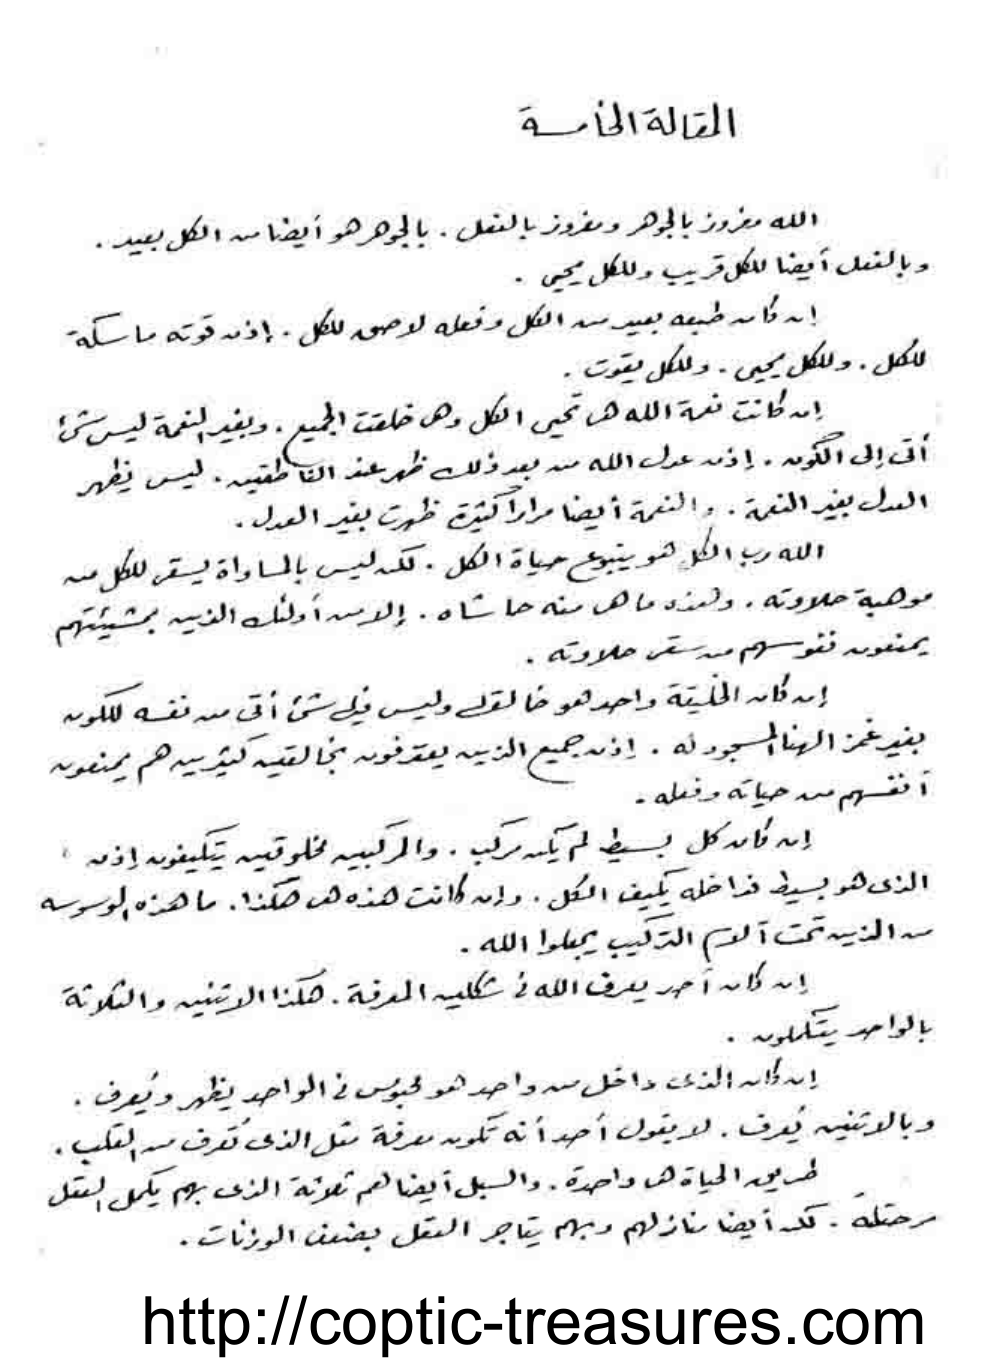 المقالة الخامسة
الله مفروز بالجوهر ومفروز بالفعل . بالجوهر هو أيضا من الكل بعيد .
وبالفعل أيضا للكل قريب وللكل يحيى .
إن كان طبعه بعيد من الكل وفعله لاصق للكل . إذن قوته ماسكة
للكل . وللكل يحيى . وللكل يقوت .
إن كانت نعمة الله هى تحيى الكل وهى خلقت الجميع . وبغير النعمة ليس شئ
أتى إلى الكون . إذن عدل الله من بعد ذلك ظهر عند الناطقين . ليس يظهر
العدل بغير النعمة . والنعمة أيضا مراراً كثيرة ظهرت بغير العدل .
الله رب الكل هو ينبوع حياة الكل . لكن ليس بالمساواة يسقى للكل من
موهبة حلاوته . وهذه ما هى منه حاشاه . إلا من أولئك الذين بمشيئتهم
يمنعون نفوسهم من سقى حلاوته .
إن كان الخليقة واحد هو خالقها وليس فيها شئ أتى من نفسه للكون
بغير غمز الهنا المسجود له . إذن جميع الذين يعترفون بخالقين كثيرين هم يمنعون
أنفسهم من حياته وفعله .
إن كان كل بسيط لم يكن مركب . والمركبين مخلوقين يتكيفون إذن
الذى هو بسيط فداخله يكيف الكل . وإن كانت هذه هى هكذا . ما هذه الوسوسه
من الذين تحت آلام التركيب يجعلوا الله .
إن كان أحد يعرف الله فى شكلين المعرفة . هكذا الاثنين والثلاثة
بالواحد يتكملون .
إن كان الذى داخل من واحد هو محبوس فى الواحد يظهر ويُعرف .
وبالاثنين يُعرف . لا يقول أحد أنه تكون معرفة مثل الذى تُعرف من القلب .
طريق الحياة هى واحدة . والسبل أيضا هم ثلاثة الذى بهم يكمل العقل
مرحلته . لكن أيضا منازلهم وبهم يتاجر العقل بضعف الوزنات .
http://coptic-treasures.com